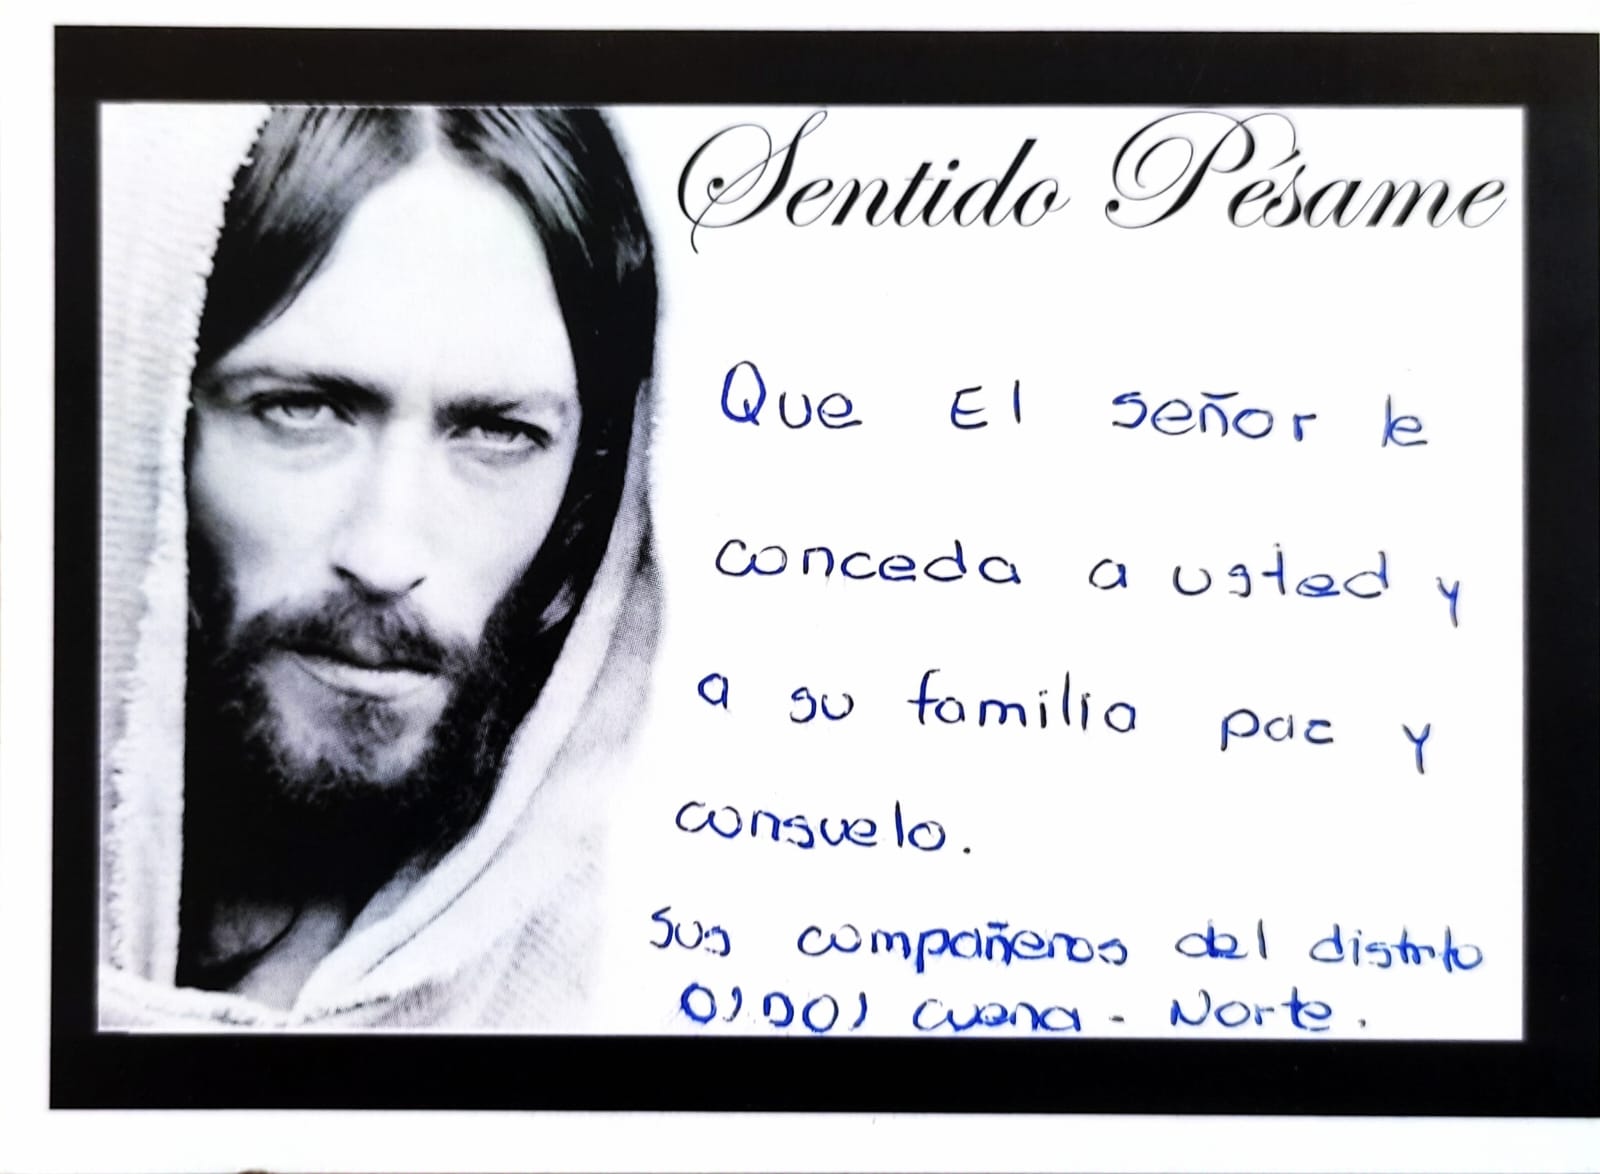 Sentido Pésame
Que El señor le
conceda a usted y
a su familia paz y
consuelo.
Sus compañeros del distrito
01D01 Cuenca - Norte.